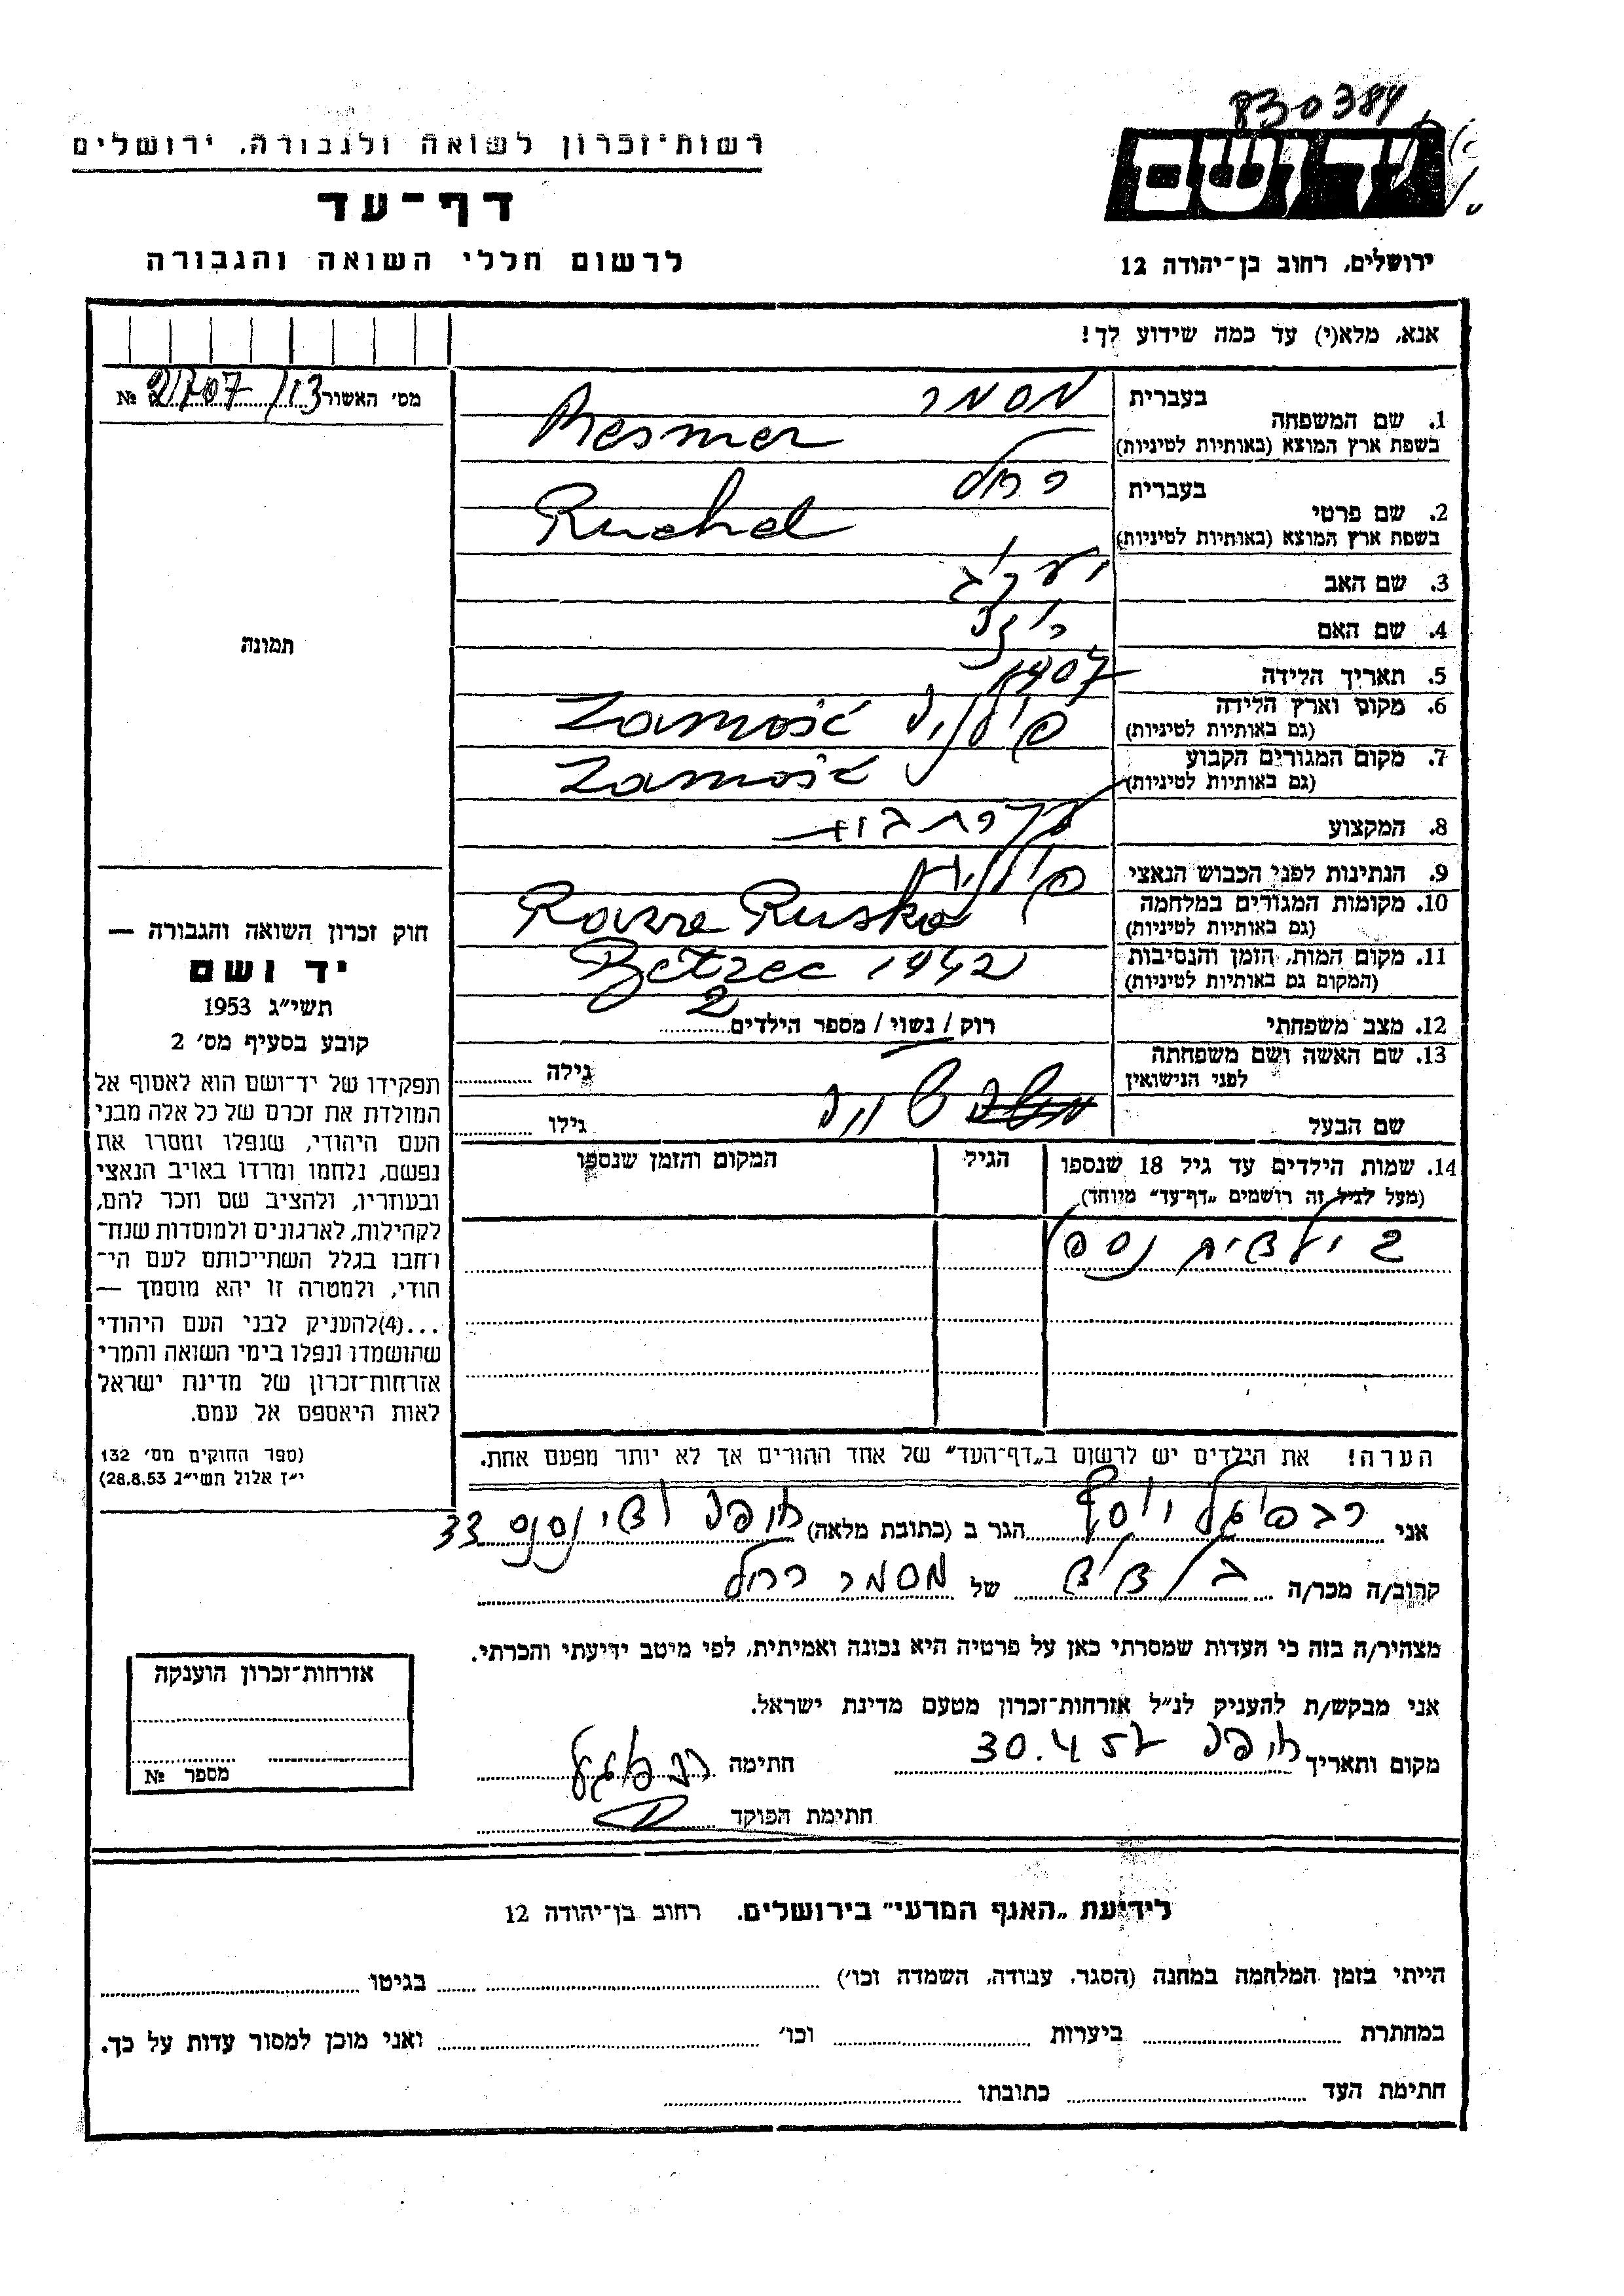 830384
רשות־זכרון לשואה ולגבורה, ירושלים
יד ושם
דף־עד
לרשום חללי השואה והגבורה
ירושלים, רחוב בן־יהודה 12
אנא, מלא(י) עד כמה שידוע לך!
מס׳ האשור 2707/13 №
1. שם המשפחה
בעברית מסמר
בשפת ארץ המוצא (באותיות לטיניות) Mesmer
2. שם פרטי
בעברית רחל
בשפת ארץ המוצא (באותיות לטיניות) Ruchel
3. שם האב יעקב
4. שם האם
5. תאריך הלידה 1907
6. מקום וארץ הלידה
(גם באותיות לטיניות) פולניה Zamość
7. מקום המגורים הקבוע
(גם באותיות לטיניות) Zamość
8. המקצוע עקרת בית
9. הנתינות לפני הכבוש הנאצי פולנית
10. מקומות המגורים במלחמה
(גם באותיות לטיניות) Rawa Ruska
11. מקום המות, הזמן והנסיבות
(המקום גם באותיות לטיניות) Bełzec 1942
12. מצב משפחתי רוק / נשוי / מספר הילדים 2
13. שם האשה ושם משפחתה
לפני הנישואין גילה
שם הבעל גילו
14. שמות הילדים עד גיל 18 שנספו
(מעל לגיל זה רושמים „דף־עד” מיוחד)
הגיל
המקום והזמן שנספו
2 ילדים נספו
הערה! את הילדים יש לרשום ב„דף־העד” של אחד ההורים אך לא יותר מפעם אחת.
תמונה
חוק זכרון השואה והגבורה —
יד ושם
תשי״ג 1953
קובע בסעיף מס׳ 2
תפקידו של יד־ושם הוא לאסוף אל
המולדת את זכרם של כל אלה מבני
העם היהודי, שנפלו ומסרו את
נפשם, נלחמו ומרדו באויב הנאצי
ובעוזריו, ולהציב שם וזכר להם,
לקהילות, לארגונים ולמוסדות שנח־
רבו בגלל השתייכותם לעם הי־
הודי, ולמטרה זו יהא מוסמך —
...(4)להעניק לבני העם היהודי
שהושמדו ונפלו בימי השואה והמרי
אזרחות־זכרון של מדינת ישראל
לאות היאספם אל עמם.
(ספר החוקים מס׳ 132
י״ז אלול תשי״ג 28.8.53)
אני יוסף הגר ב (כתובת מלאה) חיפה 33
קרוב/ה מכר/ה של מסמר רחל
מצהיר/ה בזה כי העדות שמסרתי כאן על פרטיה היא נכונה ואמיתית, לפי מיטב ידיעתי והכרתי.
אני מבקש/ת להעניק לנ״ל אזרחות־זכרון מטעם מדינת ישראל.
מקום ותאריך חיפה 30.4.57 חתימה
חתימת הפוקד
אזרחות־זכרון הוענקה
מספר №
לידיעת „האגף המדעי” בירושלים, רחוב בן־יהודה 12
הייתי בזמן המלחמה במחנה (הסגר, עבודה, השמדה וכו׳) בגיטו
במחתרת ביערות וכו׳ ואני מוכן למסור עדות על כך.
חתימת העד כתובתו